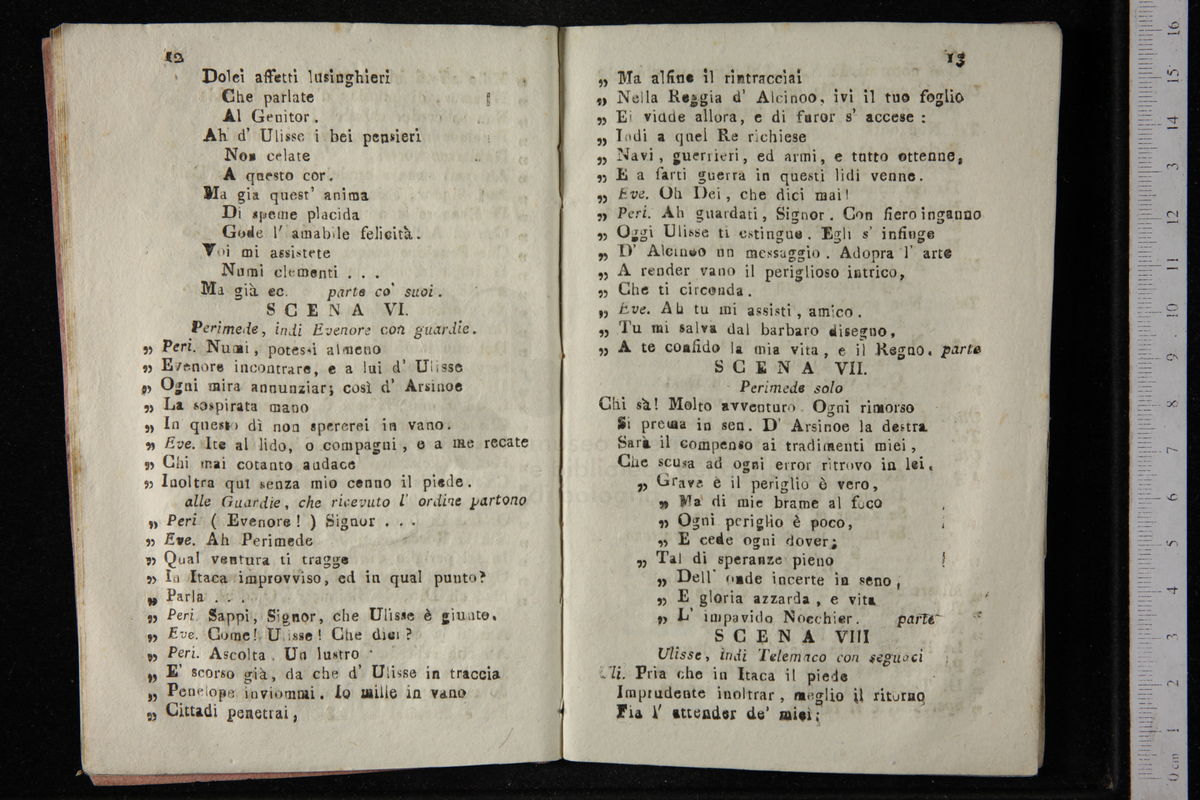 12
Dolci affetti lusinghieri
Che parlate
Al Genitor.
Ah d' Ulisse i bei pensieri
Non celate
A questo cor.
Ma gia quest' anima
Di speme placida
Gode l' amabile felicità.
Voi mi assistete
Numi clementi . . .
Ma già ec. parte co' suoi.
SCENA VI.
Perimede, indi Evenore con guardie.
„ Peri. Numi, potessi almeno
„ Evenore incontrare, e a lui d' Ulisse
„ Ogni mira annunziar; così d' Arsinoe
„ La sospirata mano
„ In questo dì non spererei in vano.
„ Eve. Ite al lido, o compagni, e a me recate
„ Chi mai cotanto audace
„ Inoltra qui senza mio cenno il piede.
alle Guardie, che ricevuto l' ordine partono
„ Peri ( Evenore! ) Signor . . .
„ Eve. Ah Perimede
„ Qual ventura ti tragge
„ In Itaca improvviso, ed in qual punto?
„ Parla . . .
„ Peri. Sappi, Signor, che Ulisse è giunto.
„ Eve. Come! Ulisse! Che dici?
„ Peri. Ascolta. Un lustro
„ E' scorso già, da che d' Ulisse in traccia
„ Penelope inviommi. Io mille in vano
„ Cittadi penetrai,
13
„ Ma alfine il rintracciai
„ Nella Reggia d' Alcinoo, ivi il tuo foglio
„ Ei vidde allora, e di furor s' accese:
„ Indi a quel Re richiese
„ Navi, guerrieri, ed armi, e tutto ottenne,
„ E a farti guerra in questi lidi venne.
„ Eve. Oh Dei, che dici mai!
„ Peri. Ah guardati, Signor. Con fiero inganno
„ Oggi Ulisse ti estingue. Egli s' infinge
„ D' Alcinoo un messaggio. Adopra l' arte
„ A render vano il periglioso intrico,
„ Che ti circonda.
„ Eve. Ah tu mi assisti, amico.
„ Tu mi salva dal barbaro disegno,
„ A te confido la mia vita, e il Regno. parte
SCENA VII.
Perimede solo
Chi sà! Molto avventuro. Ogni rimorso
Si prema in sen. D' Arsinoe la destra
Sarà il compenso ai tradimenti miei,
Che scusa ad ogni error ritrovo in lei.
„ Grave è il periglio è vero,
„ Ma di mie brame al foco
„ Ogni periglio è poco,
„ E cede ogni dover;
„ Tal di speranze pieno
„ Dell' onde incerte in seno,
„ E gloria azzarda, e vita
„ L' impavido Nocchier. parte
SCENA VIII
Ulisse, indi Telemaco con seguaci
Uli. Pria che in Itaca il piede
Imprudente inoltrar, meglio il ritorno
Fia l' attender de' miei;